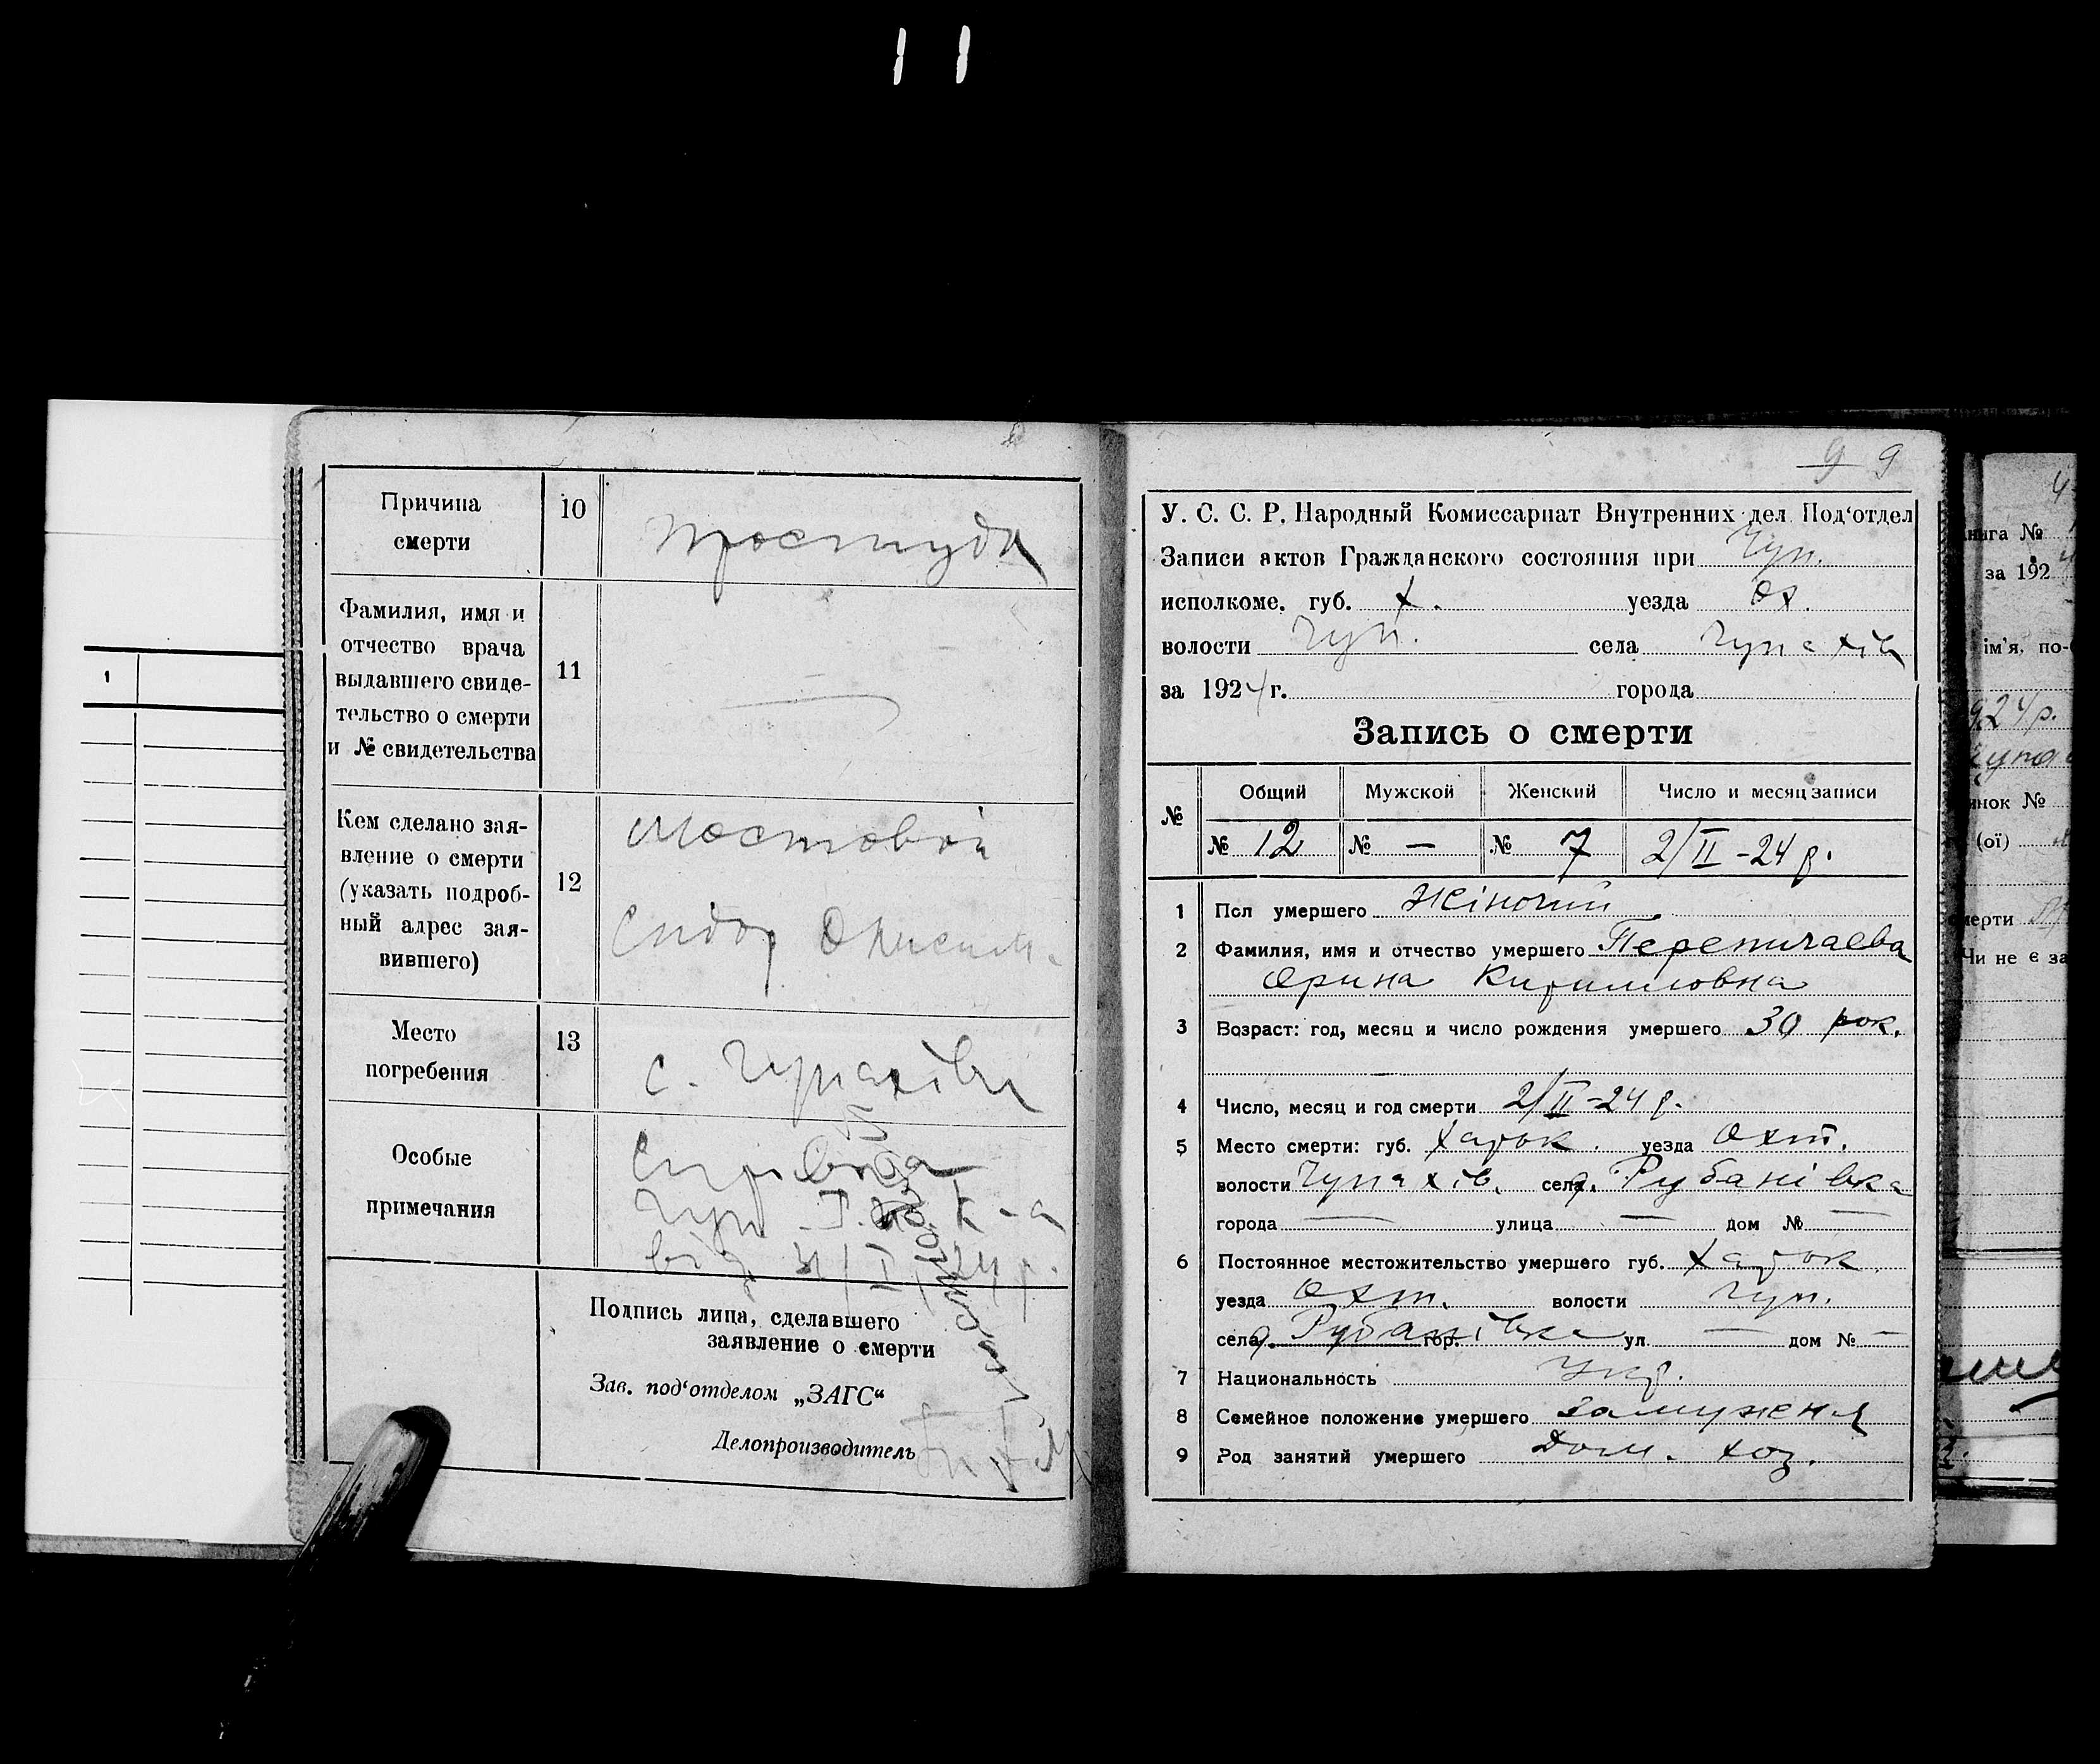 11
1
Причина смерти
10
простуда
Фамилия, имя и
отчество врача
выдавшего свиде-
тельство о смерти
и № свидетельства
11
—
Кем сделано зая-
вление о смерти
(указать подроб-
ный адрес зая-
вившего)
12
Мостовой
Сидор Онисим.
Место
погребения
13
с. Чупахівка
Особые
примечания
від 31/I 24 р.
Подпись лица, сделавшего
заявление о смерти
Зав. под‘отделом „ЗАГС“
Делопроизводитель
9 9
У. С. С. Р. Народный Комиссариат Внутренних дел Под‘отдел
Записи актов Гражданского состояния при Чуп.
исполкоме. губ. Х. уезда Ох.
волости Чуп. села Чупахів
за 1924 г. города
Запись о смерти
№ Общий Мужской Женский Число и месяц записи
№ 12 № — № 7 2/II-24 р.
1 Пол умершего жіночий
2 Фамилия, имя и отчество умершего Перепичаева
Орина Кирилловна
3 Возраст: год, месяц и число рождения умершего 30 рок.
4 Число, месяц и год смерти 2/II-24 р.
5 Место смерти: губ. Харок. уезда Охт.
волости Чупахів. села х. Рубанівка
города — улица — дом № —
6 Постоянное местожительство умершего губ. Харок.
уезда Охт. волости Чуп.
села х. Рубанівка гор. ул. — дом № —
7 Национальность Укр.
8 Семейное положение умершего замужняя
9 Род занятий умершего Дом. хоз.
нига №
за 192
ім'я, по-
924 р.
инок №
(ої)
мерти
Чи не є за